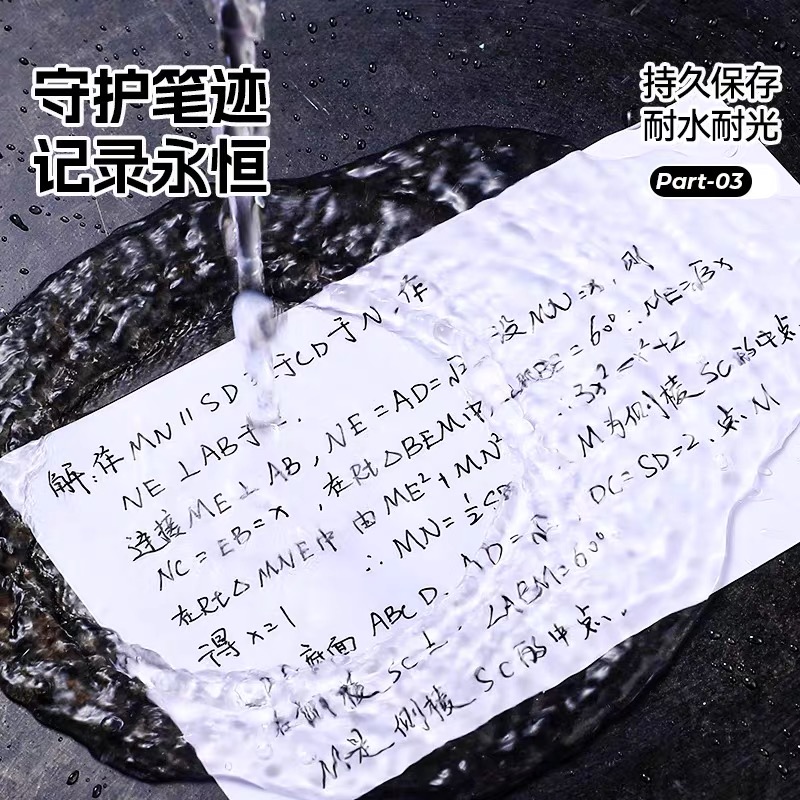 守护笔迹
记录永恒
持久保存
耐水耐光
Part-03
解:作MN∥SD 于CD于N,作
NE⊥AB于
连接ME⊥AB,NE=AD=√2 设MN=x,则
NC=EB=x,在Rt△BEM中, =60°∴ME=√3x
在Rt△MNE中 由ME²+MN² ∴3x²=x²+2
得x=1 ∴MN=½CD M为侧棱SC的中点
底面ABCD. D=√ DC=SD=2.点M
在侧棱SC上.∠ABM=60°
M是侧棱SC的中点.